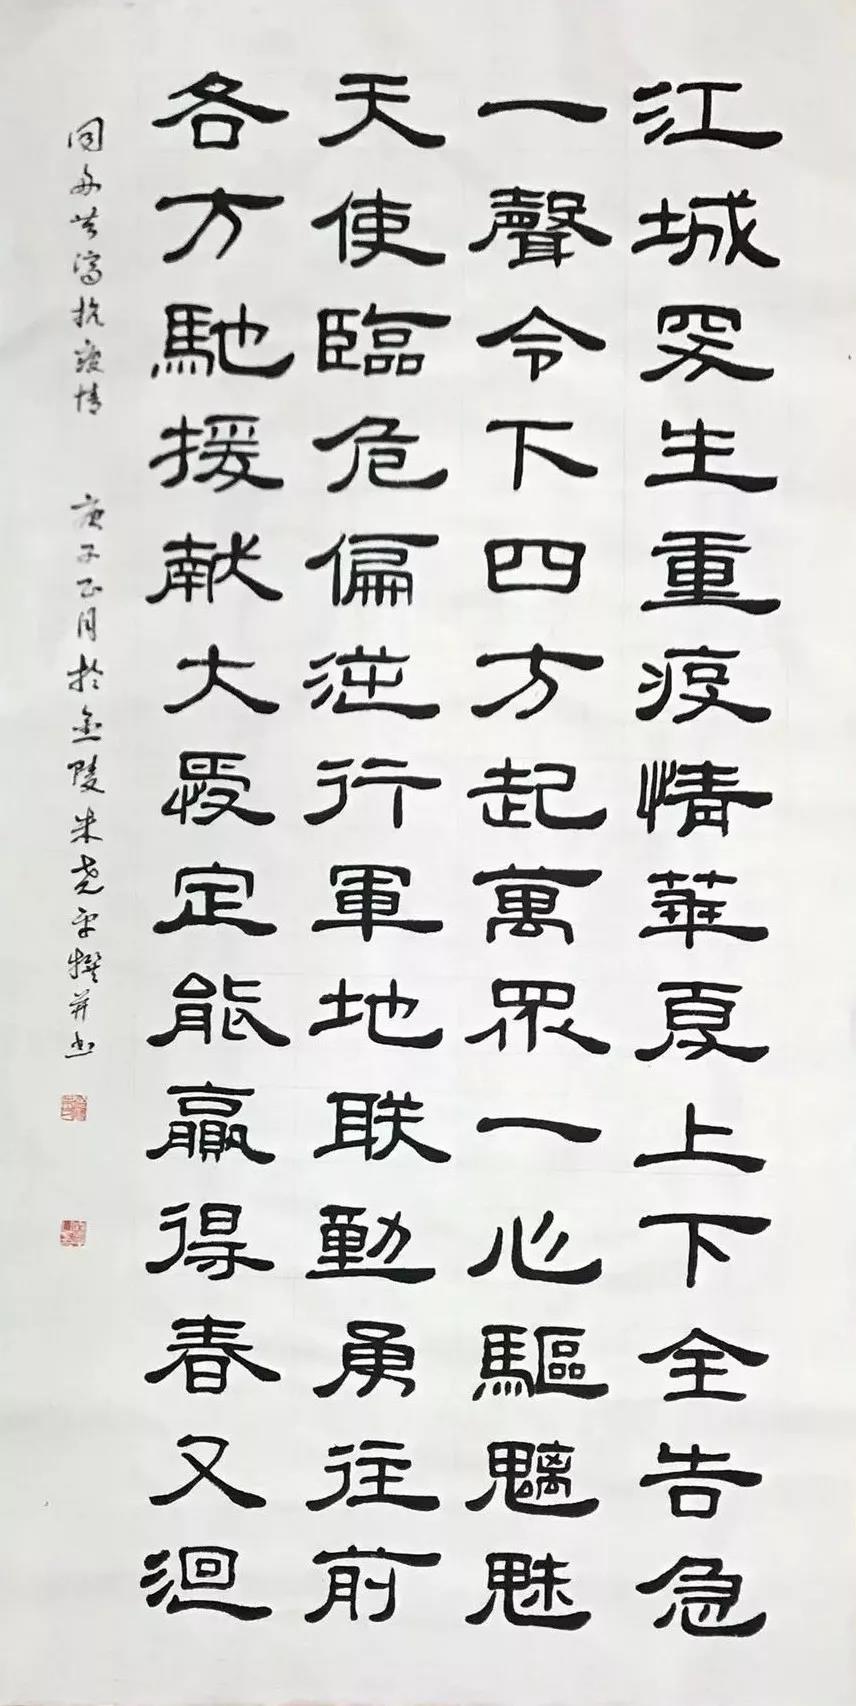 江城突生重疫情華夏上下全告急
一聲令下四方起萬眾一心驅魑魅
天使臨危偏逆行軍地联動勇往前
各方馳援献大愛定能贏得春又迴
同舟共济抗疫情 庚子正月於金陵朱尧平撰并书